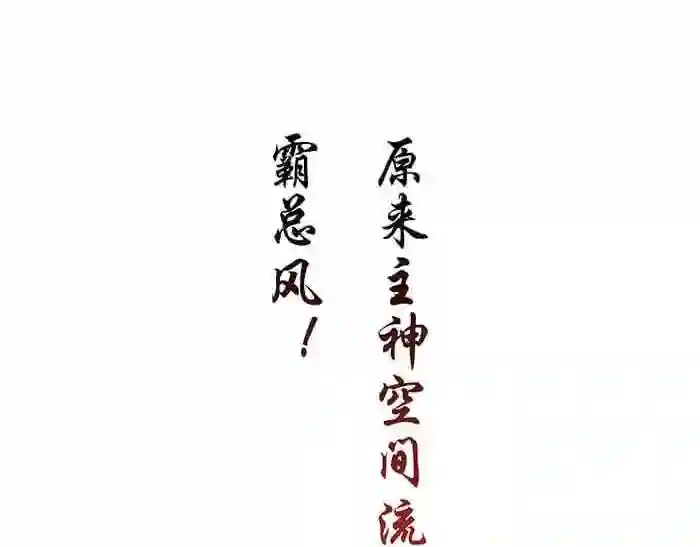 原来主神空间流
霸总风！